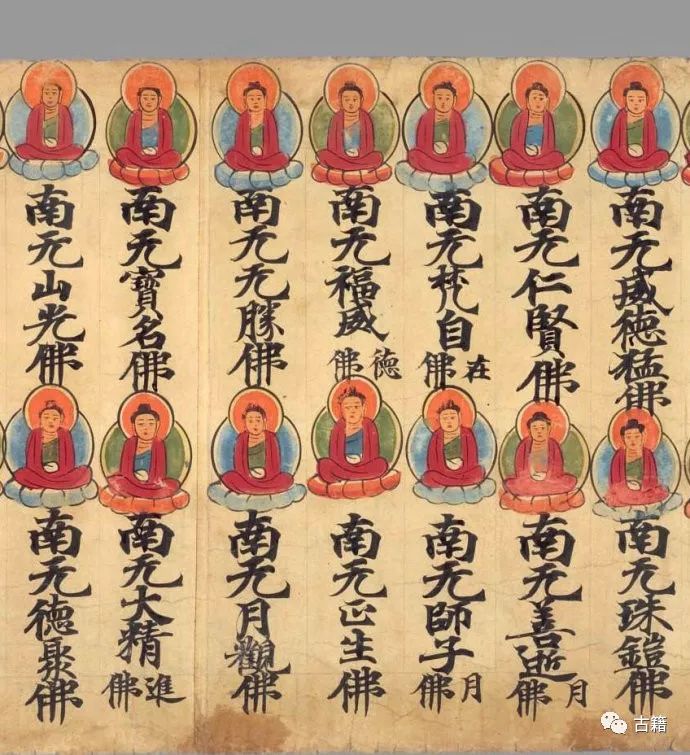 南无威德猛佛
南无珠鎧佛
南无仁賢佛
南无善逝月佛
南无梵自在佛
南无師子月佛
南无福威德佛
南无正生佛
南无无勝佛
南无月觀佛
南无寶名佛
南无大精進佛
南无山光佛
南无德聚佛
古籍